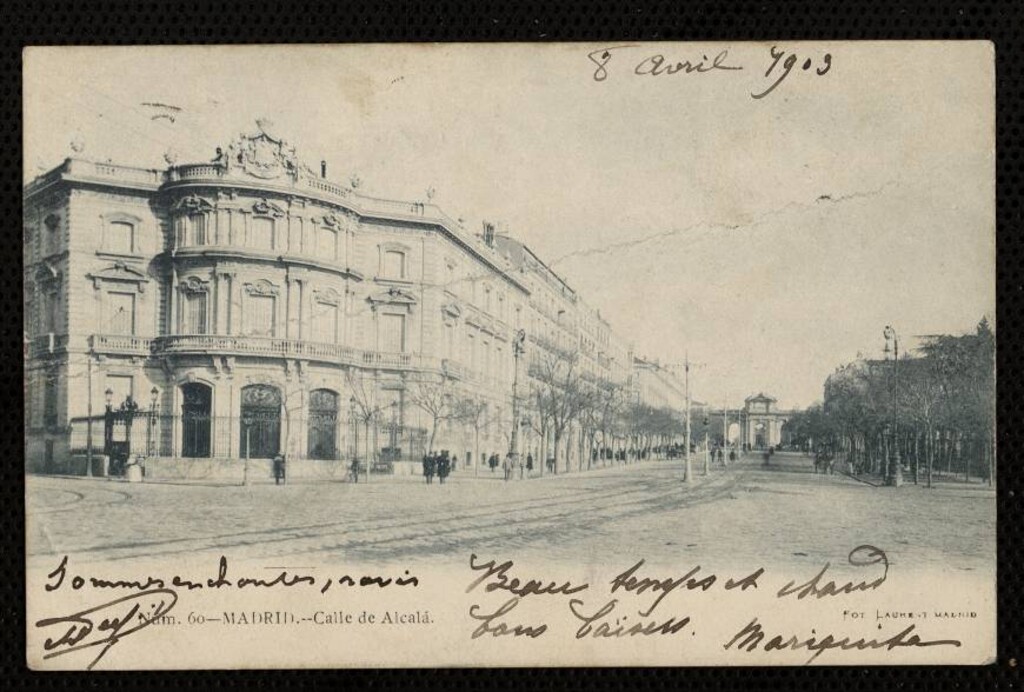 8 Avril 1903
Sommes enchantés, ravis
Beau temps et chaud
Núm. 60—MADRID.--Calle de Alcalá.
Bons Baisers.
FOT LAURENT MADRID
Mariquita